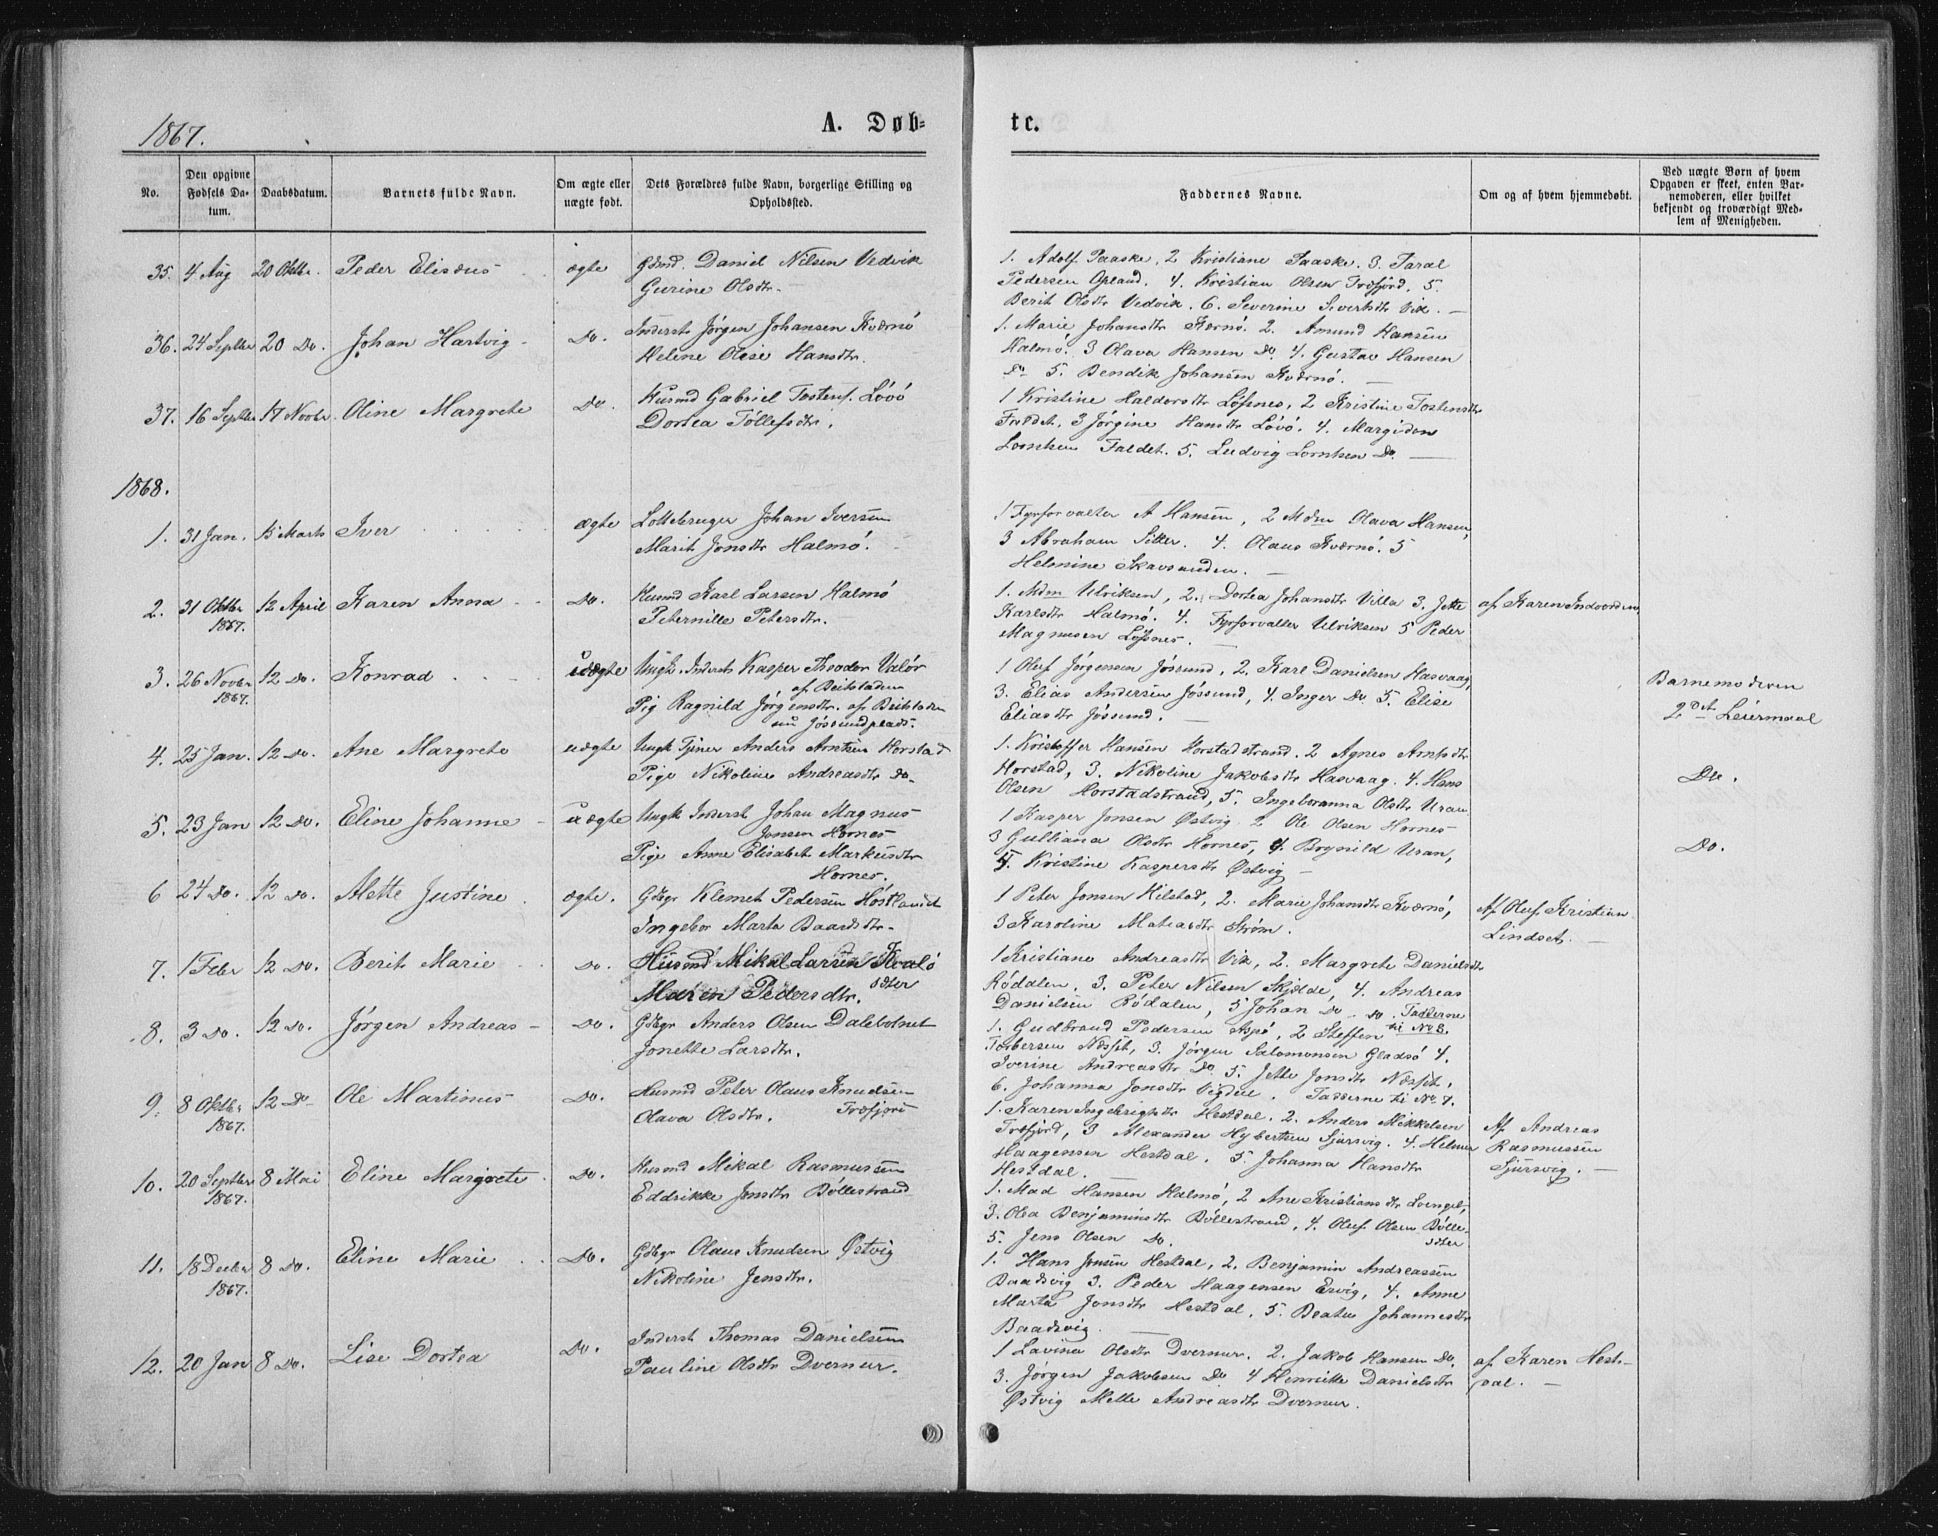 1867.
A. Døb=
te.
No.
Den opgivne Fødsels Da-tum.
Daabsdatum.
Barnets fulde Navn.
Om ægte eller uægte født.
Dets Forældres fulde Navn, borgerlige Stilling og Opholdssted.
Faddernes Navne.
Om og af hvem hjemmedøbt.
Ved uægte Børn af hvem Opgaven er skeet, enten Bar-nemoderen, eller hvilket bekjendt og troværdigt Med-lem af Menigheden.
35. 4 Aug 20 Oktbr. Peder Elisæus ægte
Gdmd. Daniel Nilsen Vedvik
Gurine Olsdtr.
1. Adolf Paaske, 2 Kristiane Paaske. 3. Taral
Pedersen Opland. 4. Kristian Olsen Træfjord. 5.
Berit Olsdtr Vedvik. 6. Severine Sivertsdtr Vik.
36. 24 Septbr 20 Do. Johan Hartvig Do.
Inderst Jørgen Johansen Kværnø
Helene Olise Hansdtr.
1. Marie Johansdtr Kærnø. 2. Amund Hansen
Halmø. 3 Olava Hansen Do 4. Gustav Hansen
Do 5. Bendik Johansen Kværnø.
37. 16 Septbr 17 Novbr. Oline Margrete Do.
Husmd Gabriel Tostens. Løvø
Dortea Tøllefsdtr.
1 Kristine Haldorsdtr Løfsnes, 2 Kristine Tostensdtr
Faldet, 3 Jørgine Hansdtr Løvø. 4. Margido
Lorntsen Faldet. 5. Ludvig Lorntsen Do.
1868.
1. 31 Jan. 15 Marts Iver ægte
Lottebruger Johan Iversen
Marit Jonsdtr Halmø.
1 Fyrforvalter A Hansen, 2 Mdm Olava Hansen,
3 Abraham Sitter. 4. Olaus Kværnø. 5
Helmine Skavsanden.
2. 31 Oktbr 1867. 12 April Karen Anna Do.
Husmd Karl Larsen Halmø
Peternille Petersdtr.
1. Mdm Ulriksen, 2. Dortea Johansdtr Villa 3. Jette
Karlsdtr Halmø. 4. Fyrforvalter Ulriksen 5 Peder
Magnusen Løfsnes.
af Karen Indvorden
3. 26 Novbr 1867. 12 Do. Konrad uægte
Ungk. Inderst Kasper Theodor Valør
af Beitstaden
Pig Ragnild Jørgensdtr. af Beitstaden
nu Jøssundplads.
1 Oluf Jørgensen Jøssund, 2. Karl Danielsen Hasvaag,
3. Elias Andersen Jøssund, 4. Inger Do 5. Elise
Eliasdtr Jøssund.
Barnemoderen
2det Leiermaal
4. 25 Jan. 12 Do. Ane Margrete uægte
Ungk Tjener Anders Arntsen Horstad
Pige Nikoline Andreasdtr Do.
1. Kristoffer Hansen Horstadstrand. 2 Agnes Arntsdtr
Horstad, 3. Nikoline Jakobsdtr Hasvaag. 4. Hans
Olsen Horstadstrand, 5. Ingeboranna Olsdtr Uran
Do.
5. 23 Jan 12 Do. Eline Johanne uægte
Ungk Inderst Johan Magnus
Jonsen Hornes
Pige Anne Elisabet Markusdtr
Hornes.
1 Kasper Jonsen Østvig. 2 Ole Olsen Hornes
3 Gulliana Olsdtr Hornes, 4. Brynild Uran,
5. Kristine Kaspersdtr Østvig
Do.
6 24 Do. 12 Do. Mette Justine ægte.
Gdbgr Klemet Pedersen Høstland
Ingebor Marta Baardsdtr.
1 Peter Jonsen Hilstad, 2. Marie Johansdtr Kværnø,
3 Karoline Matiasdtr Strøm.
Af Oluf Kristian
Lindset.
7. 1 Febr 12 Do. Berit Marie Do.
Husmd Mikal Larsen Kvalø
sdter
Maren Pedersdtr.
1 Kristiane Andreasdtr Vik, 2. Margrete Danielsdtr
Rødalen, 3. Peter Nilsen Skjelde, 4. Andreas
Danielsen Rødalen, 5 Johan Do. Do. Fadderne
til No 8.
8. 3 Do. 12 Do. Jørgen Andreas Do.
Gdbgr Anders Olsen Dalebotnet
Jonette Larsdtr.
1. Gudbrand Pedersen Aspø, 2 Steffen
Torbersen Næsset, 3. Jørgen Salomonsen Gladsø 4.
Iverine Andreasdtr Do 5. Jette Jonsdtr Næsset.
6. Johanna Jonsdtr Vigdel. Fadderne til No 7.
9. 8 Oktbr 1867. 12 Do Ole Martinus Do.
Husmd Peter Olaus Knudsen
Træfjord
Olava Olsdtr.
1. Karen Ingebrigtsdtr Hestdal. 2. Anders Mikkelsen
Træfjord, 3 Alexander Hybertsen Sjursvig. 4. Helmer
Haagensen Hestdal. 5. Johanna Hansdtr
Hestdal.
Af Andreas
Rasmussen
Sjursvig.
10. 20 Septbr 1867. 8 Mai Eline Margrete Do.
Husmd Mikal Rasmussen
Eddrikke Jensdtr Bøllestrand
1. Mad Hansen Halmø, 2 Ane Kristiansdtr Lvengel,
3. Olea Benjaminsdtr Bøllestrand, 4. Oluf Olsen Bølle-
sdter
5. Jens Olsen Do.
11. 18 Decbr 1867. 8 Do. Eline Marie Do.
Gdbgr Olaus Knudsen Østvig
Nikoline Jensdtr.
1. Hans Jonsen Hestdal, 2. Benjamin Andreassen
Baadsvig 3. Peder Haagensen Ervig, 4. Anne
Marta Jonsdtr Hestdal, 5. Beate Johannesdtr
Baadsvig
12. 20 Jan 8 Do. Lise Dortea Do.
Inderst Thomas Danielsen
Pauline Olsdtr Dvernur.
1 Lavina Olsdtr Dvernur. 2. Jakob Hansen Do.
3. Jørgen Jakobsen Do 4 Henrikke Danielsdtr
Østvig Mette Andreasdtr Dvernur.
af Karen Hest-
dal.